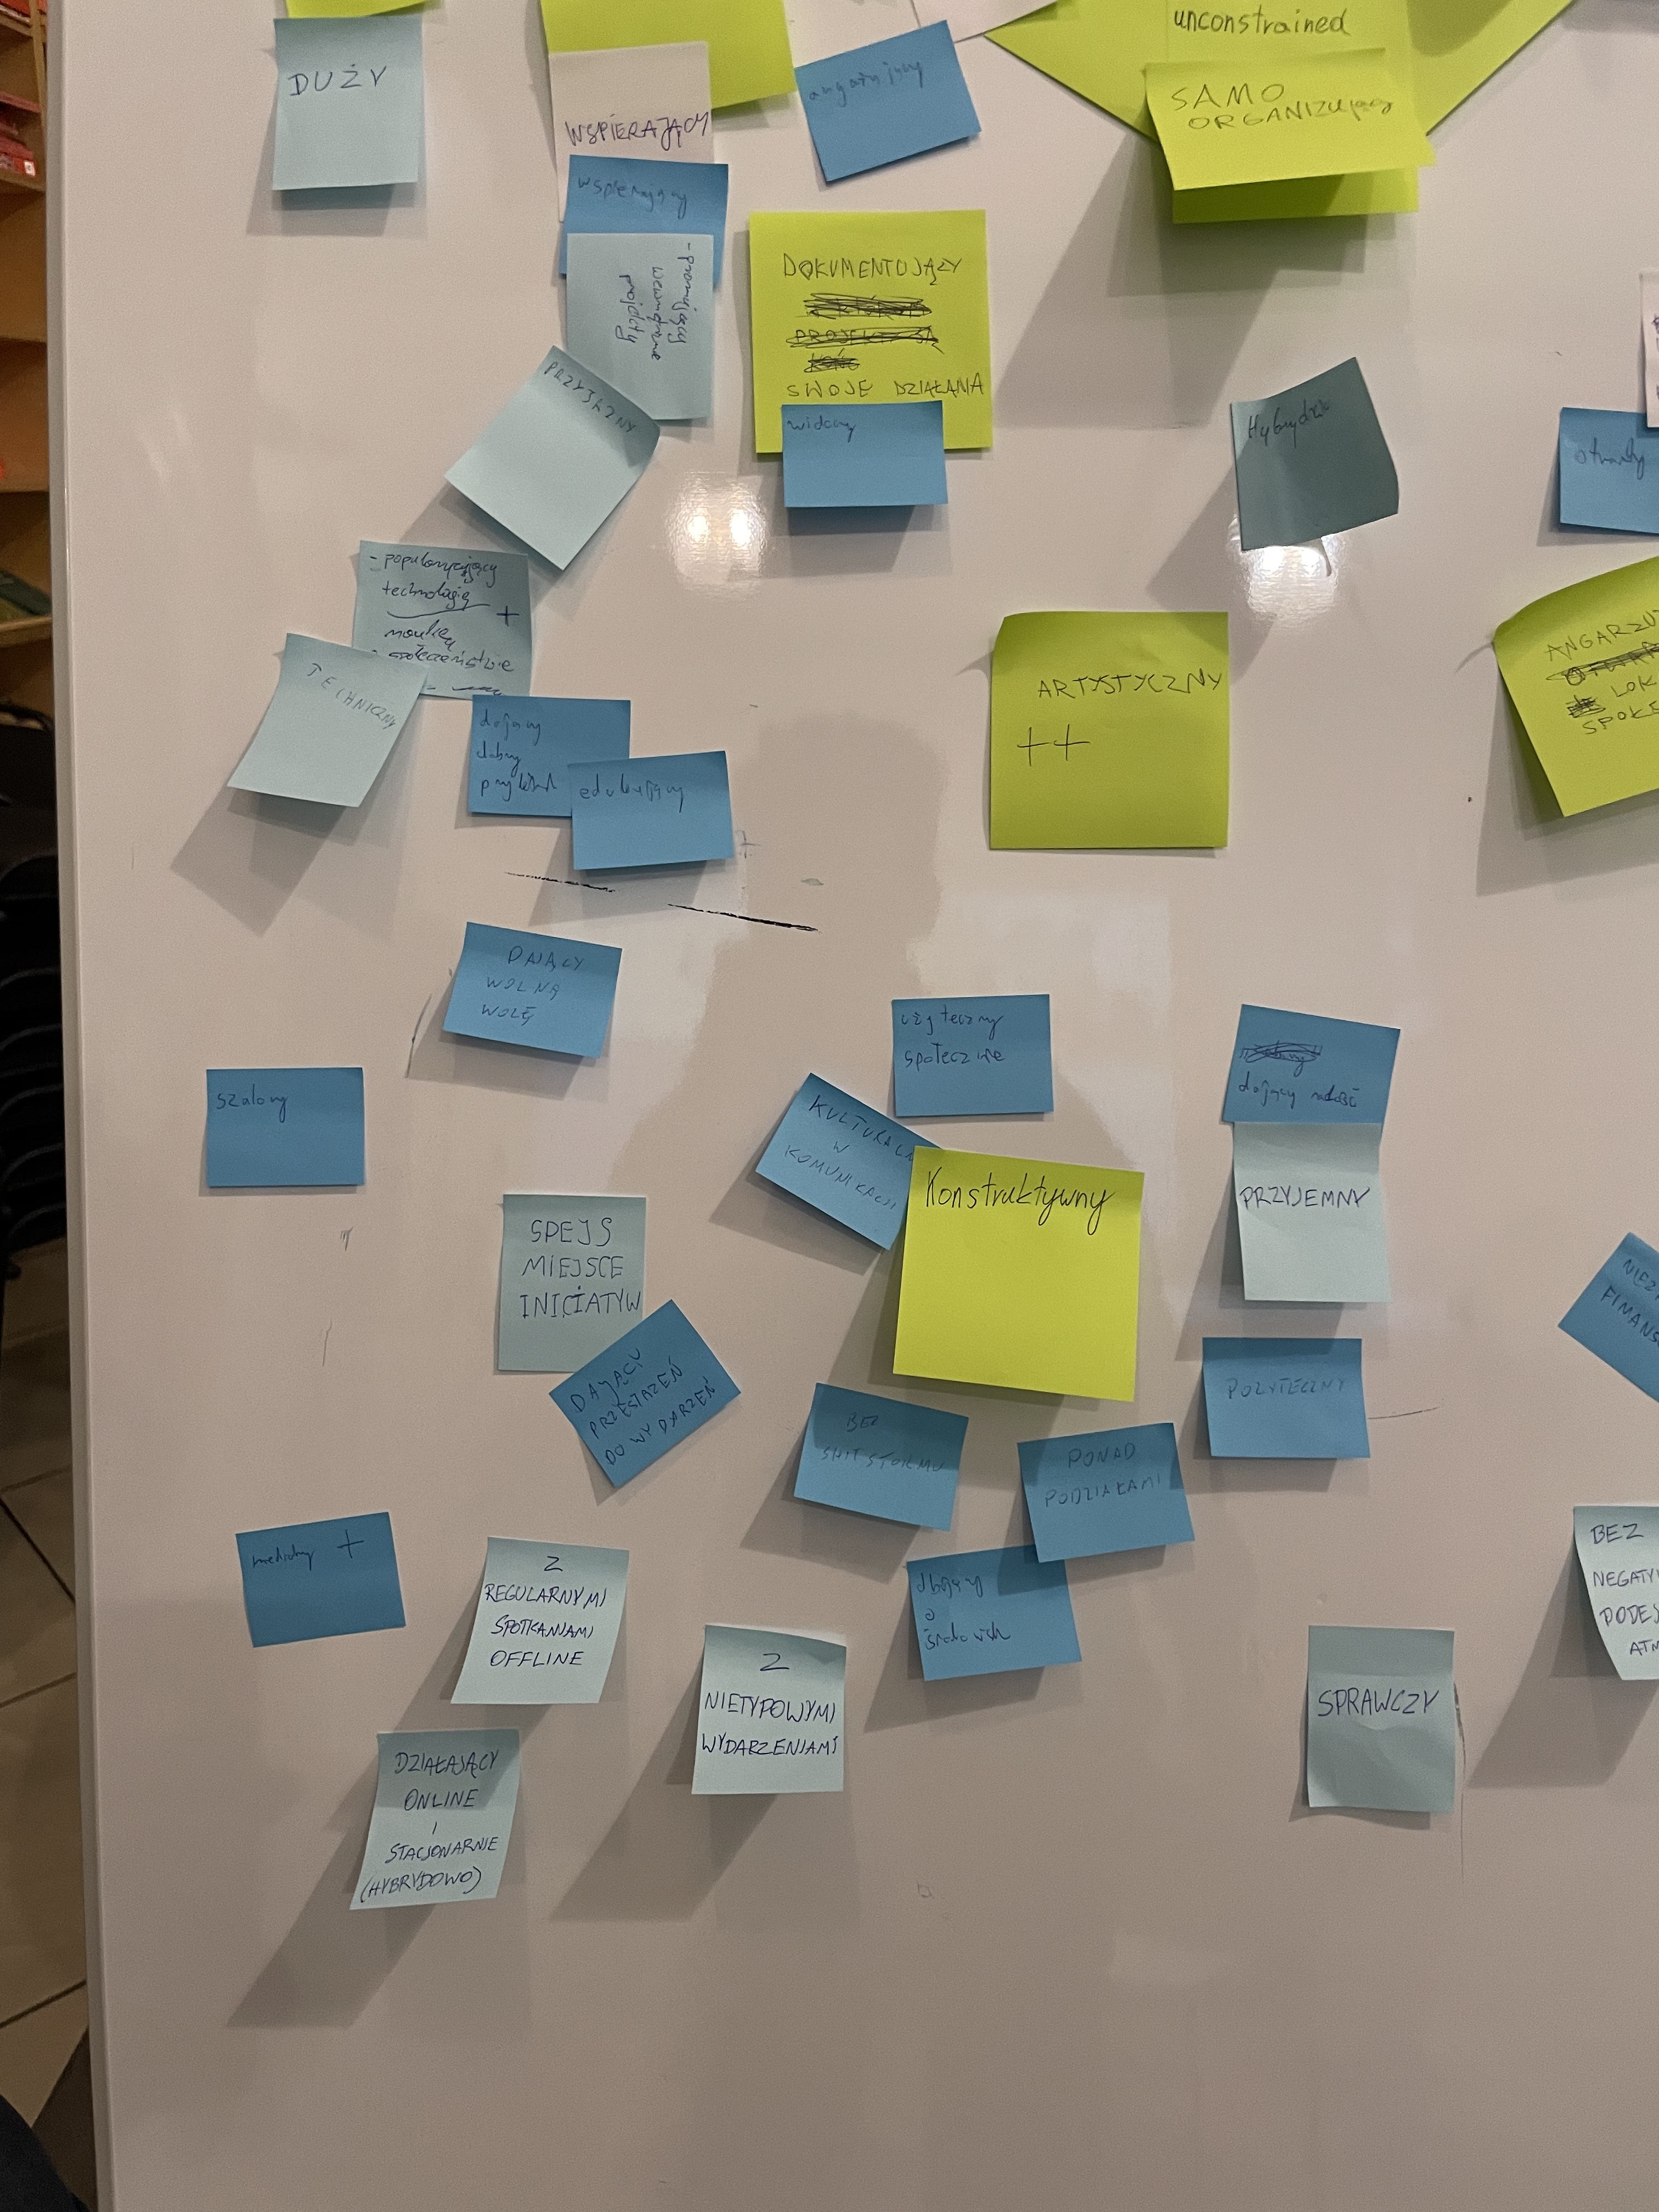 unconstrained
DUŻY
WSPIERAJĄCY
angażujący
SAMO
ORGANIZUJący
wspierający
- promujący
wewnętrzne
projekty
DOKUMENTUJĄZY
SWOJE DZIAŁANA
widoczny
PRZYJAZNY
otwarty
- popularyzujący
technologię
+
naukę
społeczeństwie
TECHNICZNY
dający
dobry
przykład
edukujący
ARTYSTYCZNY
++
ANGARZU
LOK
SPOŁE
DAJĄCY
WOLNĄ
WOLĘ
użyteczny
społecznie
dający radość
szalony
KULTURALN
W
KOMUNIKACJI
Konstruktywny
PRZYJEMNY
SPEJS
MIEJSCE
INICJATYW
NIEZ
FINANS
DAJĄCY
PRZESTRZEŃ
DO WYDARZEŃ
POŻYTECZNY
BEZ
SHITSTORMU
PONAD
PODZIAŁAMI
medialny +
Z
REGULARNYMI
SPOTKANIAMI
OFFLINE
dbający
o
środowisk
BEZ
NEGATY
PODEJ
ATM
Z
NIETYPOWYMI
WYDARZENIAMI
SPRAWCZY
DZIAŁAJĄCY
ONLINE
I
STACJONARNIE
(HYBRYDOWO)